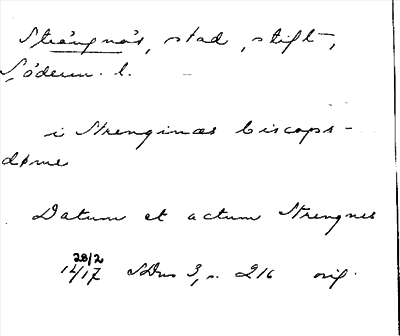 Strängnäs, stad, stift,
Söderm. l.
i Strenginæs biscops-
døme
Datum et actum Strengnes
28/2
1417 SDns 3, s. 216 orig.